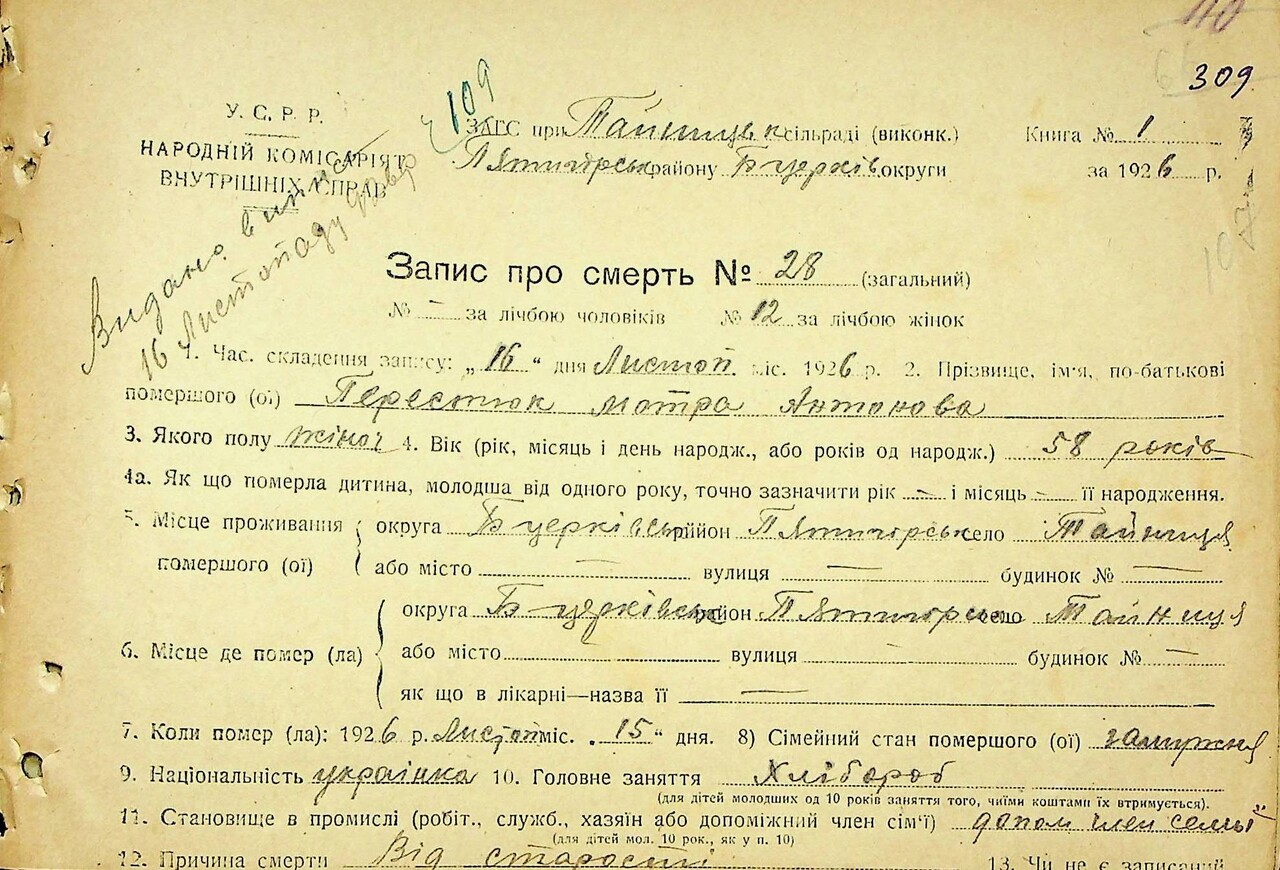 309
109
У. С. Р. Р.
НАРОДНІЙ КОМІСАРІЯТ
ВНУТРІШНІХ СПРАВ
ЗАГС при Тайницьк сільраді (виконк.)
Пятигорськ району Б церків округи
Книга № 1
за 1926 р.
Видано виписа
16 Листопаду
107
Запис про смерть № 28 (загальний)
№ — за лічбою чоловіків № 12 за лічбою жінок
1. Час складення запису: „16“ дня Листоп міс. 1926 р. 2. Прізвище, ім'я, по-батькові
помершого (ої) Перестюк Мотра Антонова
3. Якого полу жіноч 4. Вік (рік, місяць і день народж., або років од народж.) 58 років
4а. Як що померла дитина, молодша від одного року, точно зазначити рік — і місяць — її народження.
5. Місце проживання округа Б церківськ район Пятигорськ село Тайниця
помершого (ої) або місто — вулиця — будинок № —
округа Б церківськ район Пятигорськ село Тайниця
6. Місце де помер (ла) або місто — вулиця — будинок № —
як що в лікарні—назва її —
7. Коли помер (ла): 1926 р. Листоп міс. „15“ дня. 8) Сімейний стан помершого (ої) замужня
9. Національність українка 10. Головне заняття Хлібороб
(для дітей молодших од 10 років заняття того, чиїми коштами їх втримується).
11. Становище в промислі (робіт., служб., хазяїн або допоміжний член сім'ї) допом член семьї
(для дітей мол. 10 рок., як у п. 10)
12. Причина смерти Від старости 13. Чи не є записаний